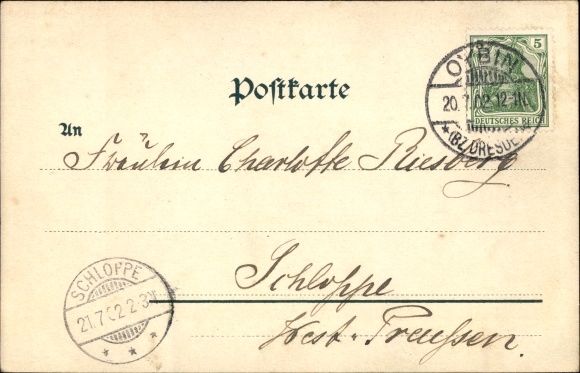 Postkarte
5
DEUTSCHES REICH
OYBIN
20.7.02.12-1N.
*(BZ. DRESDEN)
An
Fräulein Charlotte Riesberg
Schloppe
West-Preussen.
SCHLOPPE
21.7.02 2-3N
* * *